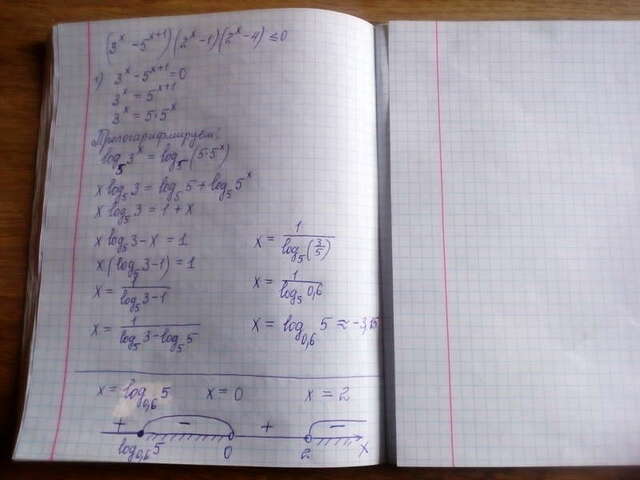 (3^x - 5^{x+1})(2^x - 1)(2^x - 4) ≤ 0
1) 3^x - 5^{x+1} = 0
3^x = 5^{x+1}
3^x = 5·5^x
Прологарифмируем:
log_5 3^x = log_5 (5·5^x)
x log_5 3 = log_5 5 + log_5 5^x
x log_5 3 = 1 + x
x log_5 3 - x = 1
x (log_5 3 - 1) = 1
x = 1/(log_5 3 - 1)
x = 1/(log_5 3 - log_5 5)
x = 1/(log_5 (3/5))
x = 1/(log_5 0,6)
x = log_{0,6} 5 ≈ -3,15
x = log_{0,6} 5 x = 0 x = 2
+ - + -
log_{0,6} 5 0 2 x